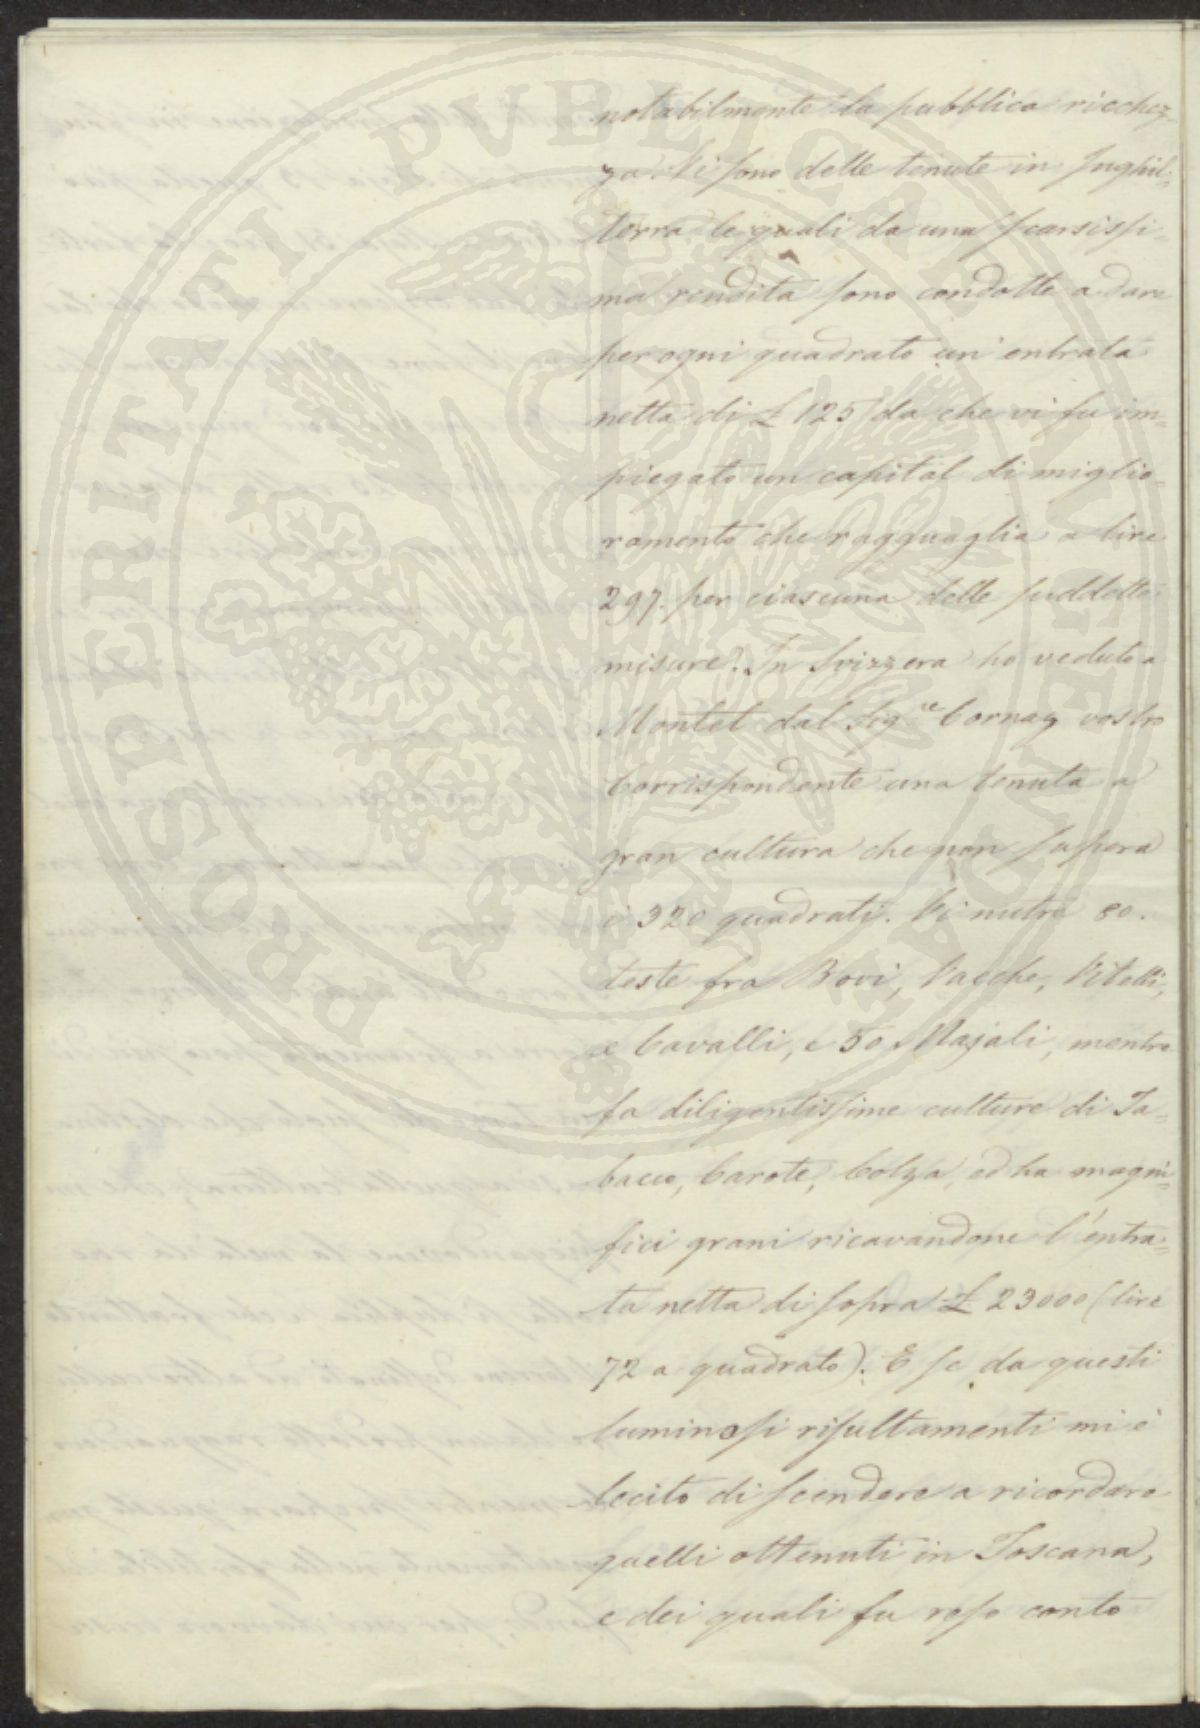 notabilmente la pubblica ricchez-
za. Vi sono delle tenute in Inghil-
terra le quali da una scarsissi-
ma rendita sono condotte a dare
per ogni quadrato un' entrata
netta di £ 125 da che vi fu im-
piegato un capital di miglio-
ramento che ragguaglia a lire
297. per ciascuna delle suddette
misure. In Svizzera ho veduto a
Montet dal Sig.re Cornaz vostro
Corrispondente una tenuta a
gran cultura che non supera
i 320 quadrati. Vi nutre 80.
teste fra Bovi, Vacche, Vitelli,
e Cavalli, e 50 Majali, mentre
fa diligentissime culture di Ta-
bacco, Carote, Colza, ed ha magni-
fici grani ricavandone l'entra-
ta netta di sopra £ 23000 (lire
72 a quadrato). E se da questi
luminosi risultamenti mi è
lecito di scendere a ricordare
quelli ottenuti in Toscana,
e dei quali fu reso conto
PROSPERITATI PVBLICAE AVGENDAE